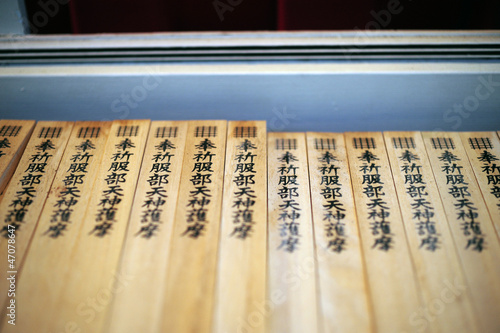 奉
奉祈服部天神護摩
奉祈服部天神護摩
奉祈服部天神護摩
奉祈服部天神護摩
奉祈服部天神護摩
奉祈服部天神護摩
奉祈服部天神護摩
奉祈服部天神護摩
奉祈服部天神護摩
奉祈服部天神護摩
奉祈服部天神護摩
奉祈服部
47078647